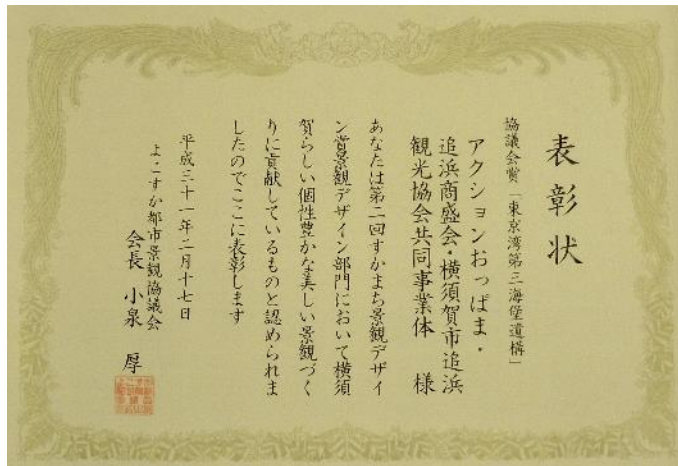 表彰状
協議会賞「東京湾第三海堡遺構」
アクションおっぱま・
追浜商盛会・横須賀市追浜
観光協会共同事業体 様
あなたは第二回すかまち景観デザイ
ン賞景観デザイン部門において横須
賀らしい個性豊かな美しい景観づく
りに貢献しているものと認められま
したのでここに表彰します
平成三十一年二月十七日
よこすか都市景観協議会
会長 小泉 厚